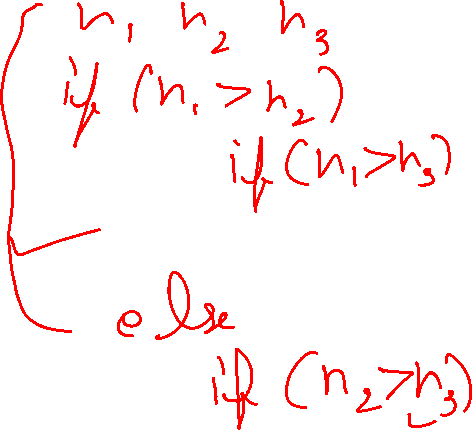 n₁ n₂ n₃
if (n₁ > n₂)
if (n₁ > n₃)
else
if (n₂ > n₃)